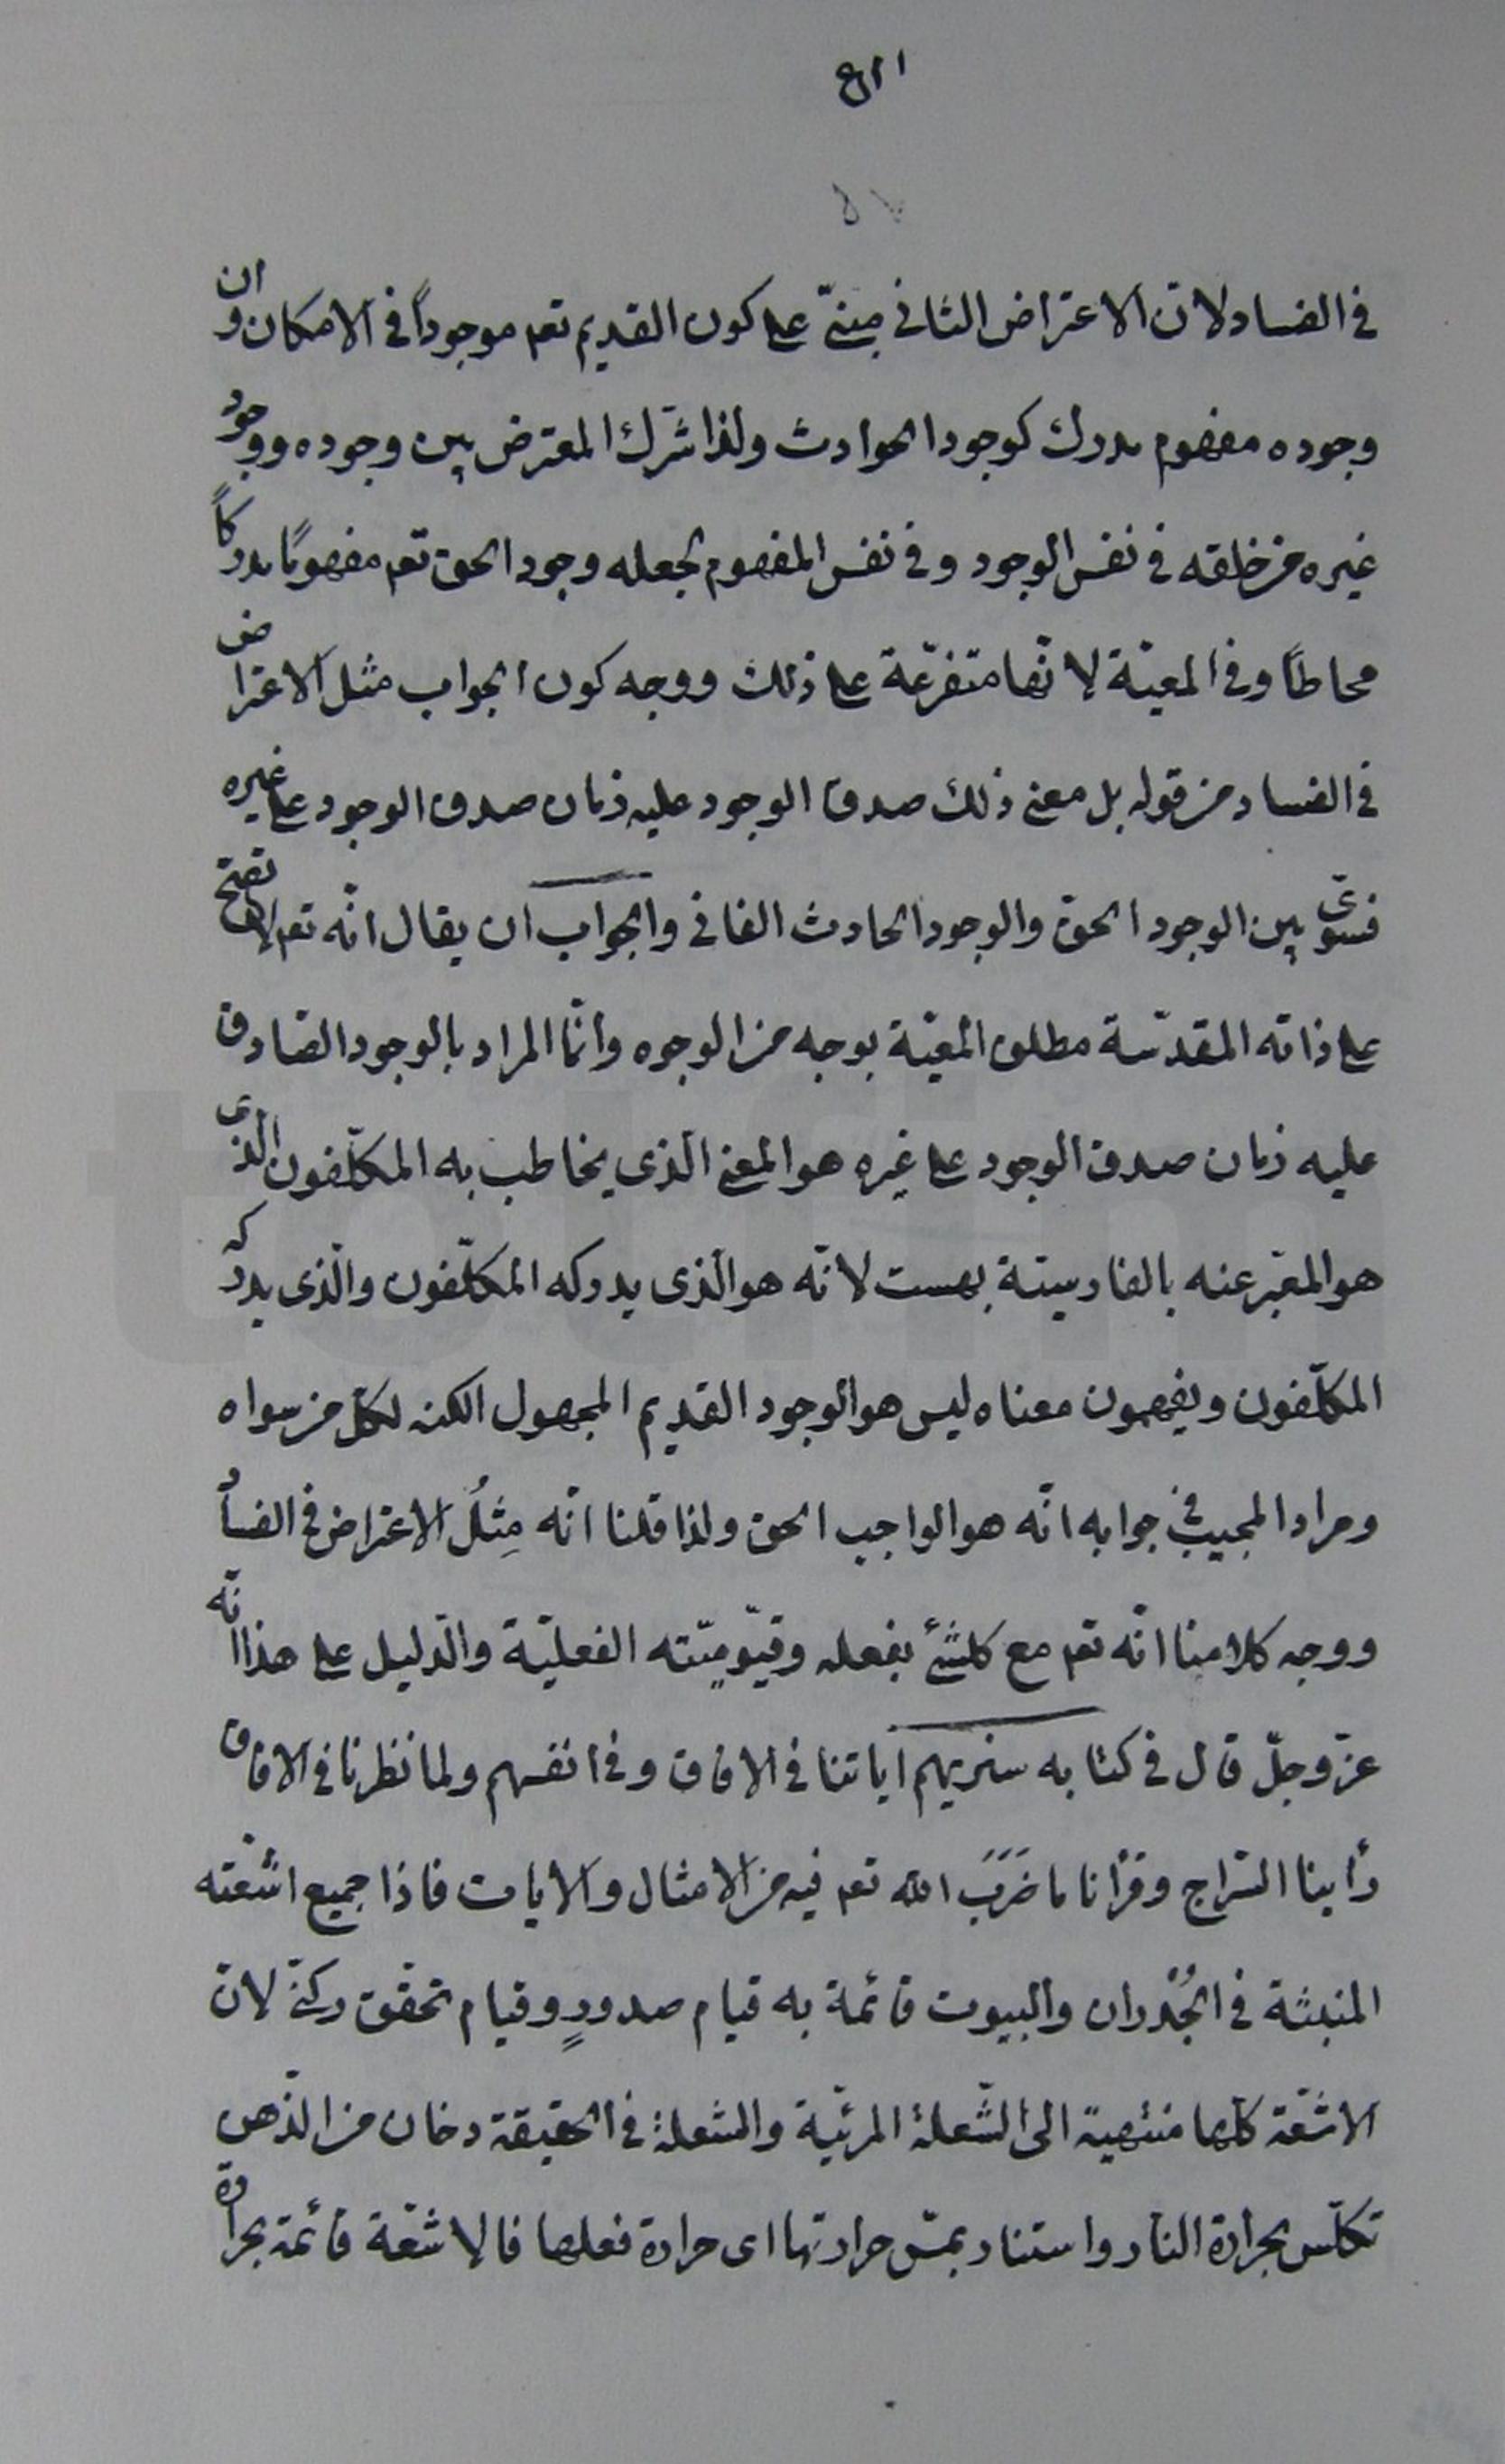 في الفساد لانّ الاعتراض الثاني مبنىّ على كون القديم تعـ موجوداً في الامكان وان
وجوده مفهوم مدرك كوجود الحوادث ولذا شرّك المعترض بين وجوده ووجود
غيره من خلقه في نفس الوجود وفي نفس المفهوم لجعله وجود الحق تعـ مفهومًا مدركاً
محاطًا وفي المعيّة لانّها متفرّعة على ذلك ووجه كون الجواب مثل الاعتراض
في الفساد من قوله بل معنى ذلك صدق الوجود عليه زمان صدق الوجود على غيره
فسوّى بين الوجود الحق والوجود الحادث الفاني والجواب ان يقال انّه تعـ لا تصحّ
على ذاته المقدّسة مطلق المعيّة بوجه من الوجوه وانّما المراد بالوجود الصّادق
عليه زمان صدق الوجود على غيره هو المعنى الّذى يخاطب به المكلّفون الّذى
هو المعبّر عنه بالفارسيّة بهست لانّه هو الّذى يدركه المكلّفون والّذى يدركه
المكلّفون ويفهمون معناه ليس هو الوجود القديم المجهول الكنه لكلّ من سواه
ومراد المجيب في جوابه انّه هو الواجب الحق ولذا قلنا انّه مِثلُ الاعتراض في الفساد
ووجه كلامنا انّه تعـ مع كلشئ بفعله وقيّوميّته الفعليّة والدّليل على هذا انّه
عزّ وجلّ قال في كتابه سنريهم اياتنا في الافاق وفي انفسهم ولما نظرنا في الافاق
رأينا السّراج وقرأنا ما ضَرَبَ الله تعـ فيه من الامثال والايات فاذا جميع اشعّته
المنبثة في الجُدران والبيوت قائمة به قيام صدورٍ وقيام تحقّق ركنىّ لانّ
الاشعّة كلّها منتهية الى الشّعلة المرئيّة والشعلة في الحقيقة دخان من الدّهن
تكلّس بحرارة النار واستنار بمسّ حرارتها اى حرارة فعلها فالاشعّة قائمة بحرارة